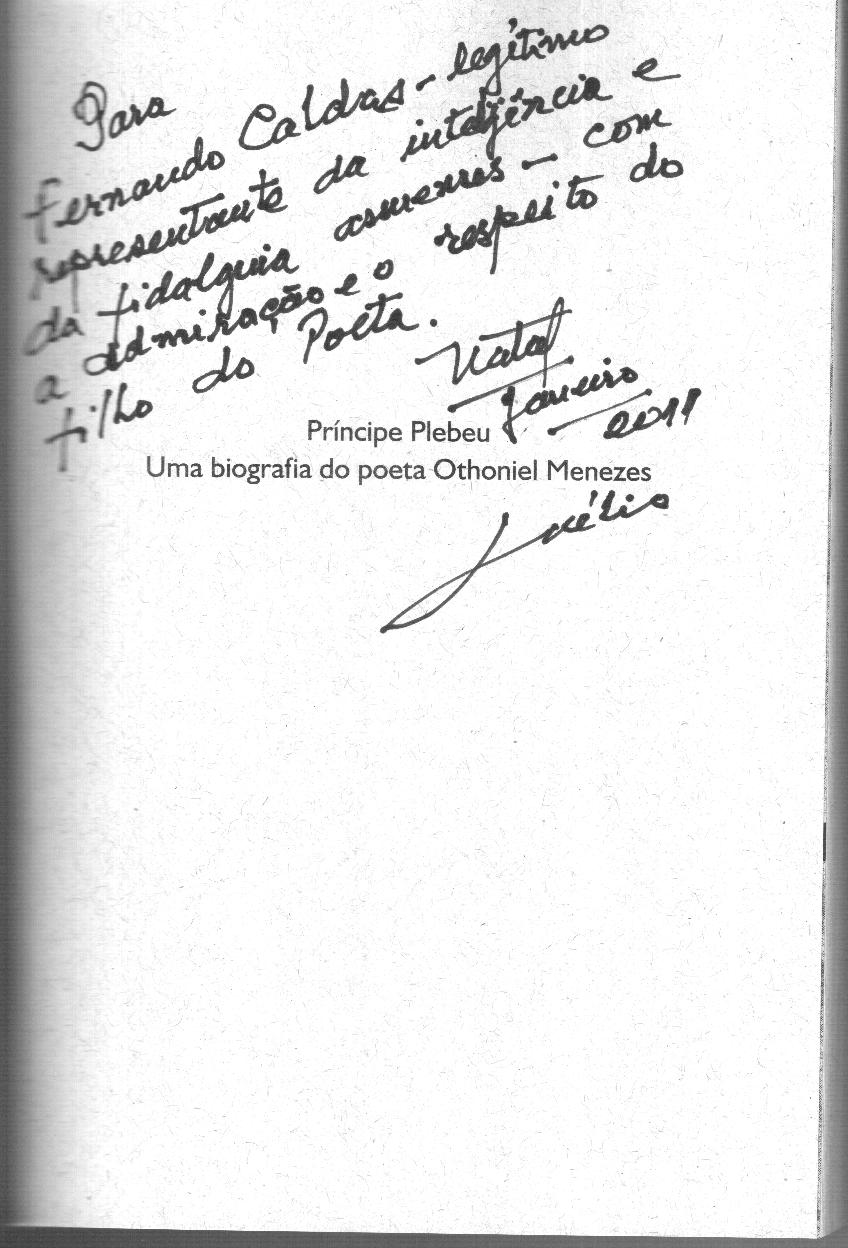 Para
Fernando Caldas - legítimo
representante da inteligência e
da fidalguia assuenses - com
a admiração e o respeito do
filho do Poeta.
Natal
Janeiro
2011
Príncipe Plebeu
Uma biografia do poeta Othoniel Menezes